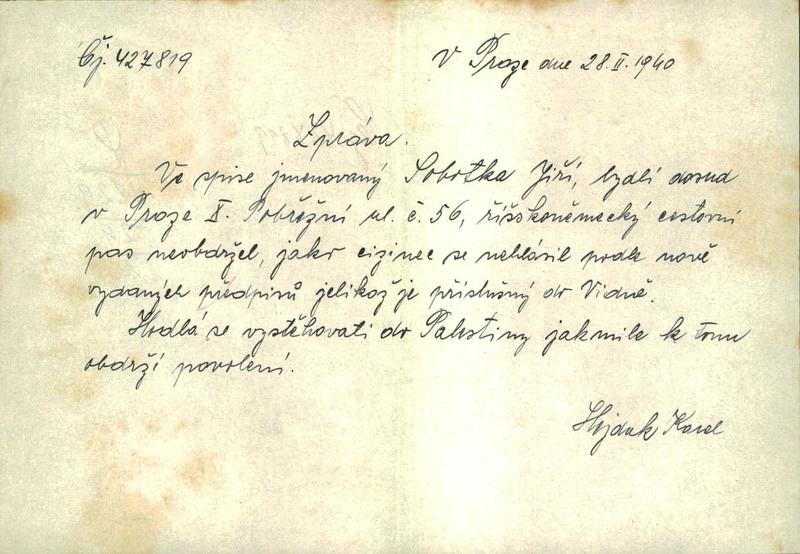 Čj. 427819
V Praze dne 28.II.1940
Zpráva.
Ve spise jmenovaný Sobotka Jiří, bydlí dosud
v Praze X. Pobřežní ul. č. 56, říšskoněmecký cestovní
pas neobdržel, jako cizinec se nehlásil podle nově
vydaných předpisů jelikož je příslušný do Vídně.
Hodlá se vystěhovati do Palestiny jakmile k tomu
obdrží povolení.
Hejduk Karel